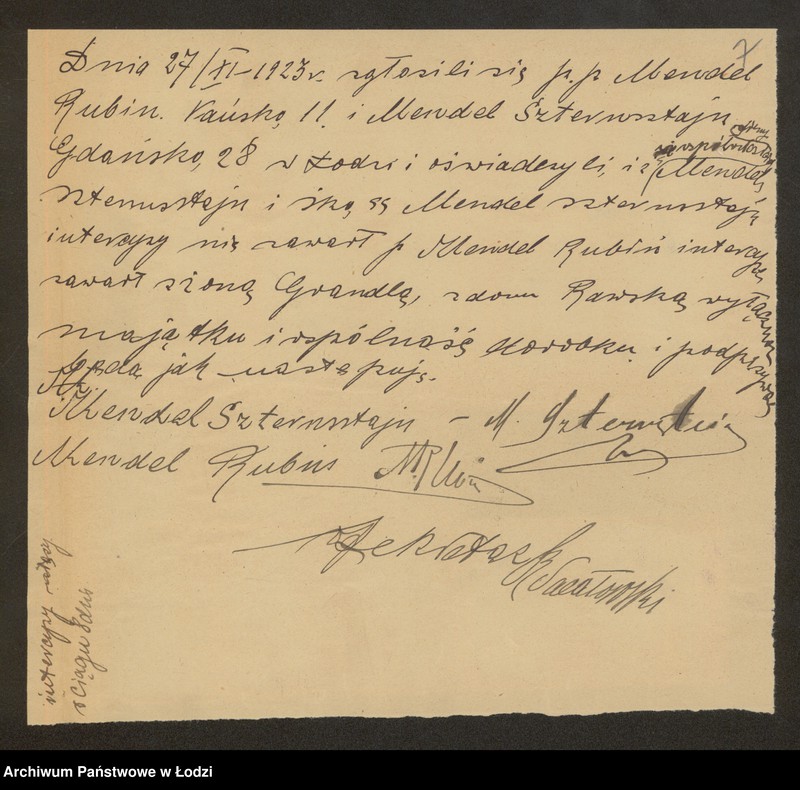 7
Dnia 27/XI-1923 r. zgłosili się p.p Mendel
Rubin. Pańska 11. i Mendel Szternsztajn
Gdańska, 28 w Łodzi i oświadczyli, iż Mendel
Szternsztajn i Mendel Szternsztajn
intercyzy nie zawarł p Mendel Rubin intercyzę
zawarł z żoną Grendlą, z domu Rawską wyłączność
majątku i wspólność dorobku i podpisywać
będą jak następuje.
Mendel Szternsztajn – M. Szternsztein
Mendel Rubin MRubin
Sekretarz
intercyzy
w ciągu 8 dni
Archiwum Państwowe w Łodzi